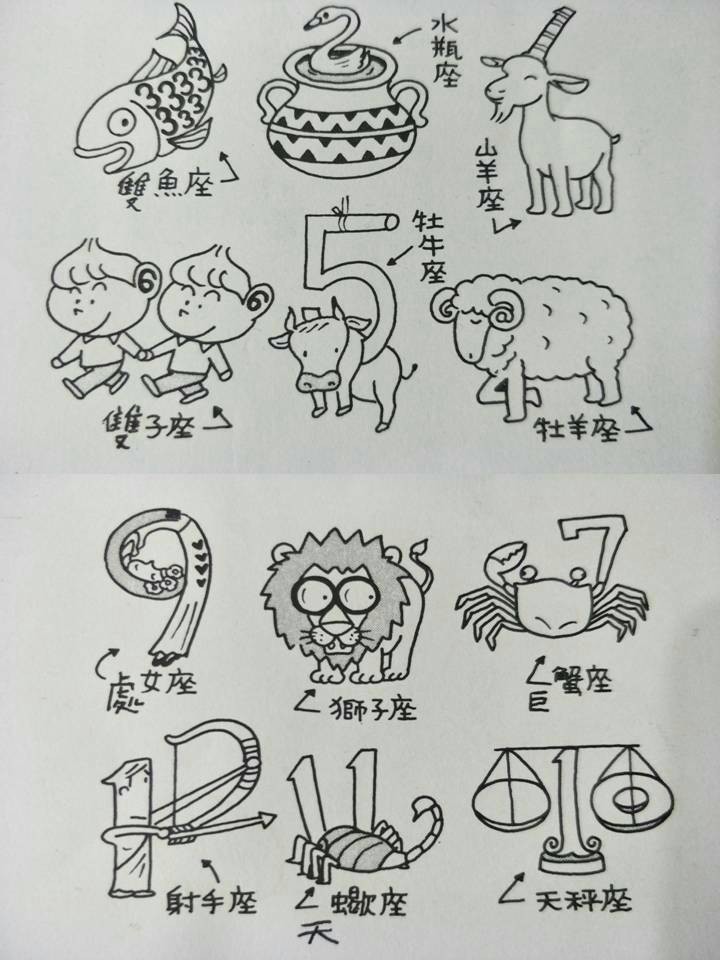 水瓶座
雙魚座
山羊座
牡牛座
雙子座
牡羊座
處女座
獅子座
巨蟹座
射手座
天蠍座
天秤座